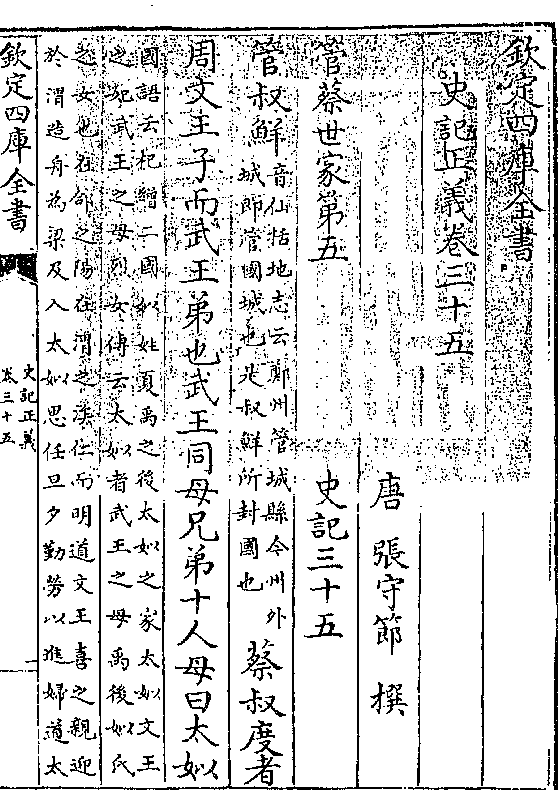 欽定四庫全書
史記正義卷三十五
唐 張守節 撰
管蔡世家第五 史記三十五
管叔鮮
音仙括地志云鄭州管城縣今州外
城即管國城也是叔鮮所封國也
蔡叔度者
周文王子而武王弟也武王同母兄弟十人母曰太姒
國語云杞繒二國姒姓夏禹之後太姒之家太姒文王
之妃武王之母列女傳云太姒者武王之母禹後姒氏
之女也在郃之陽在渭之涘仁而明道文王喜之親迎
於渭造舟為梁及入太姒思任旦夕勤勞以進婦道太
欽定四庫全書
史記正義
卷三十五
一